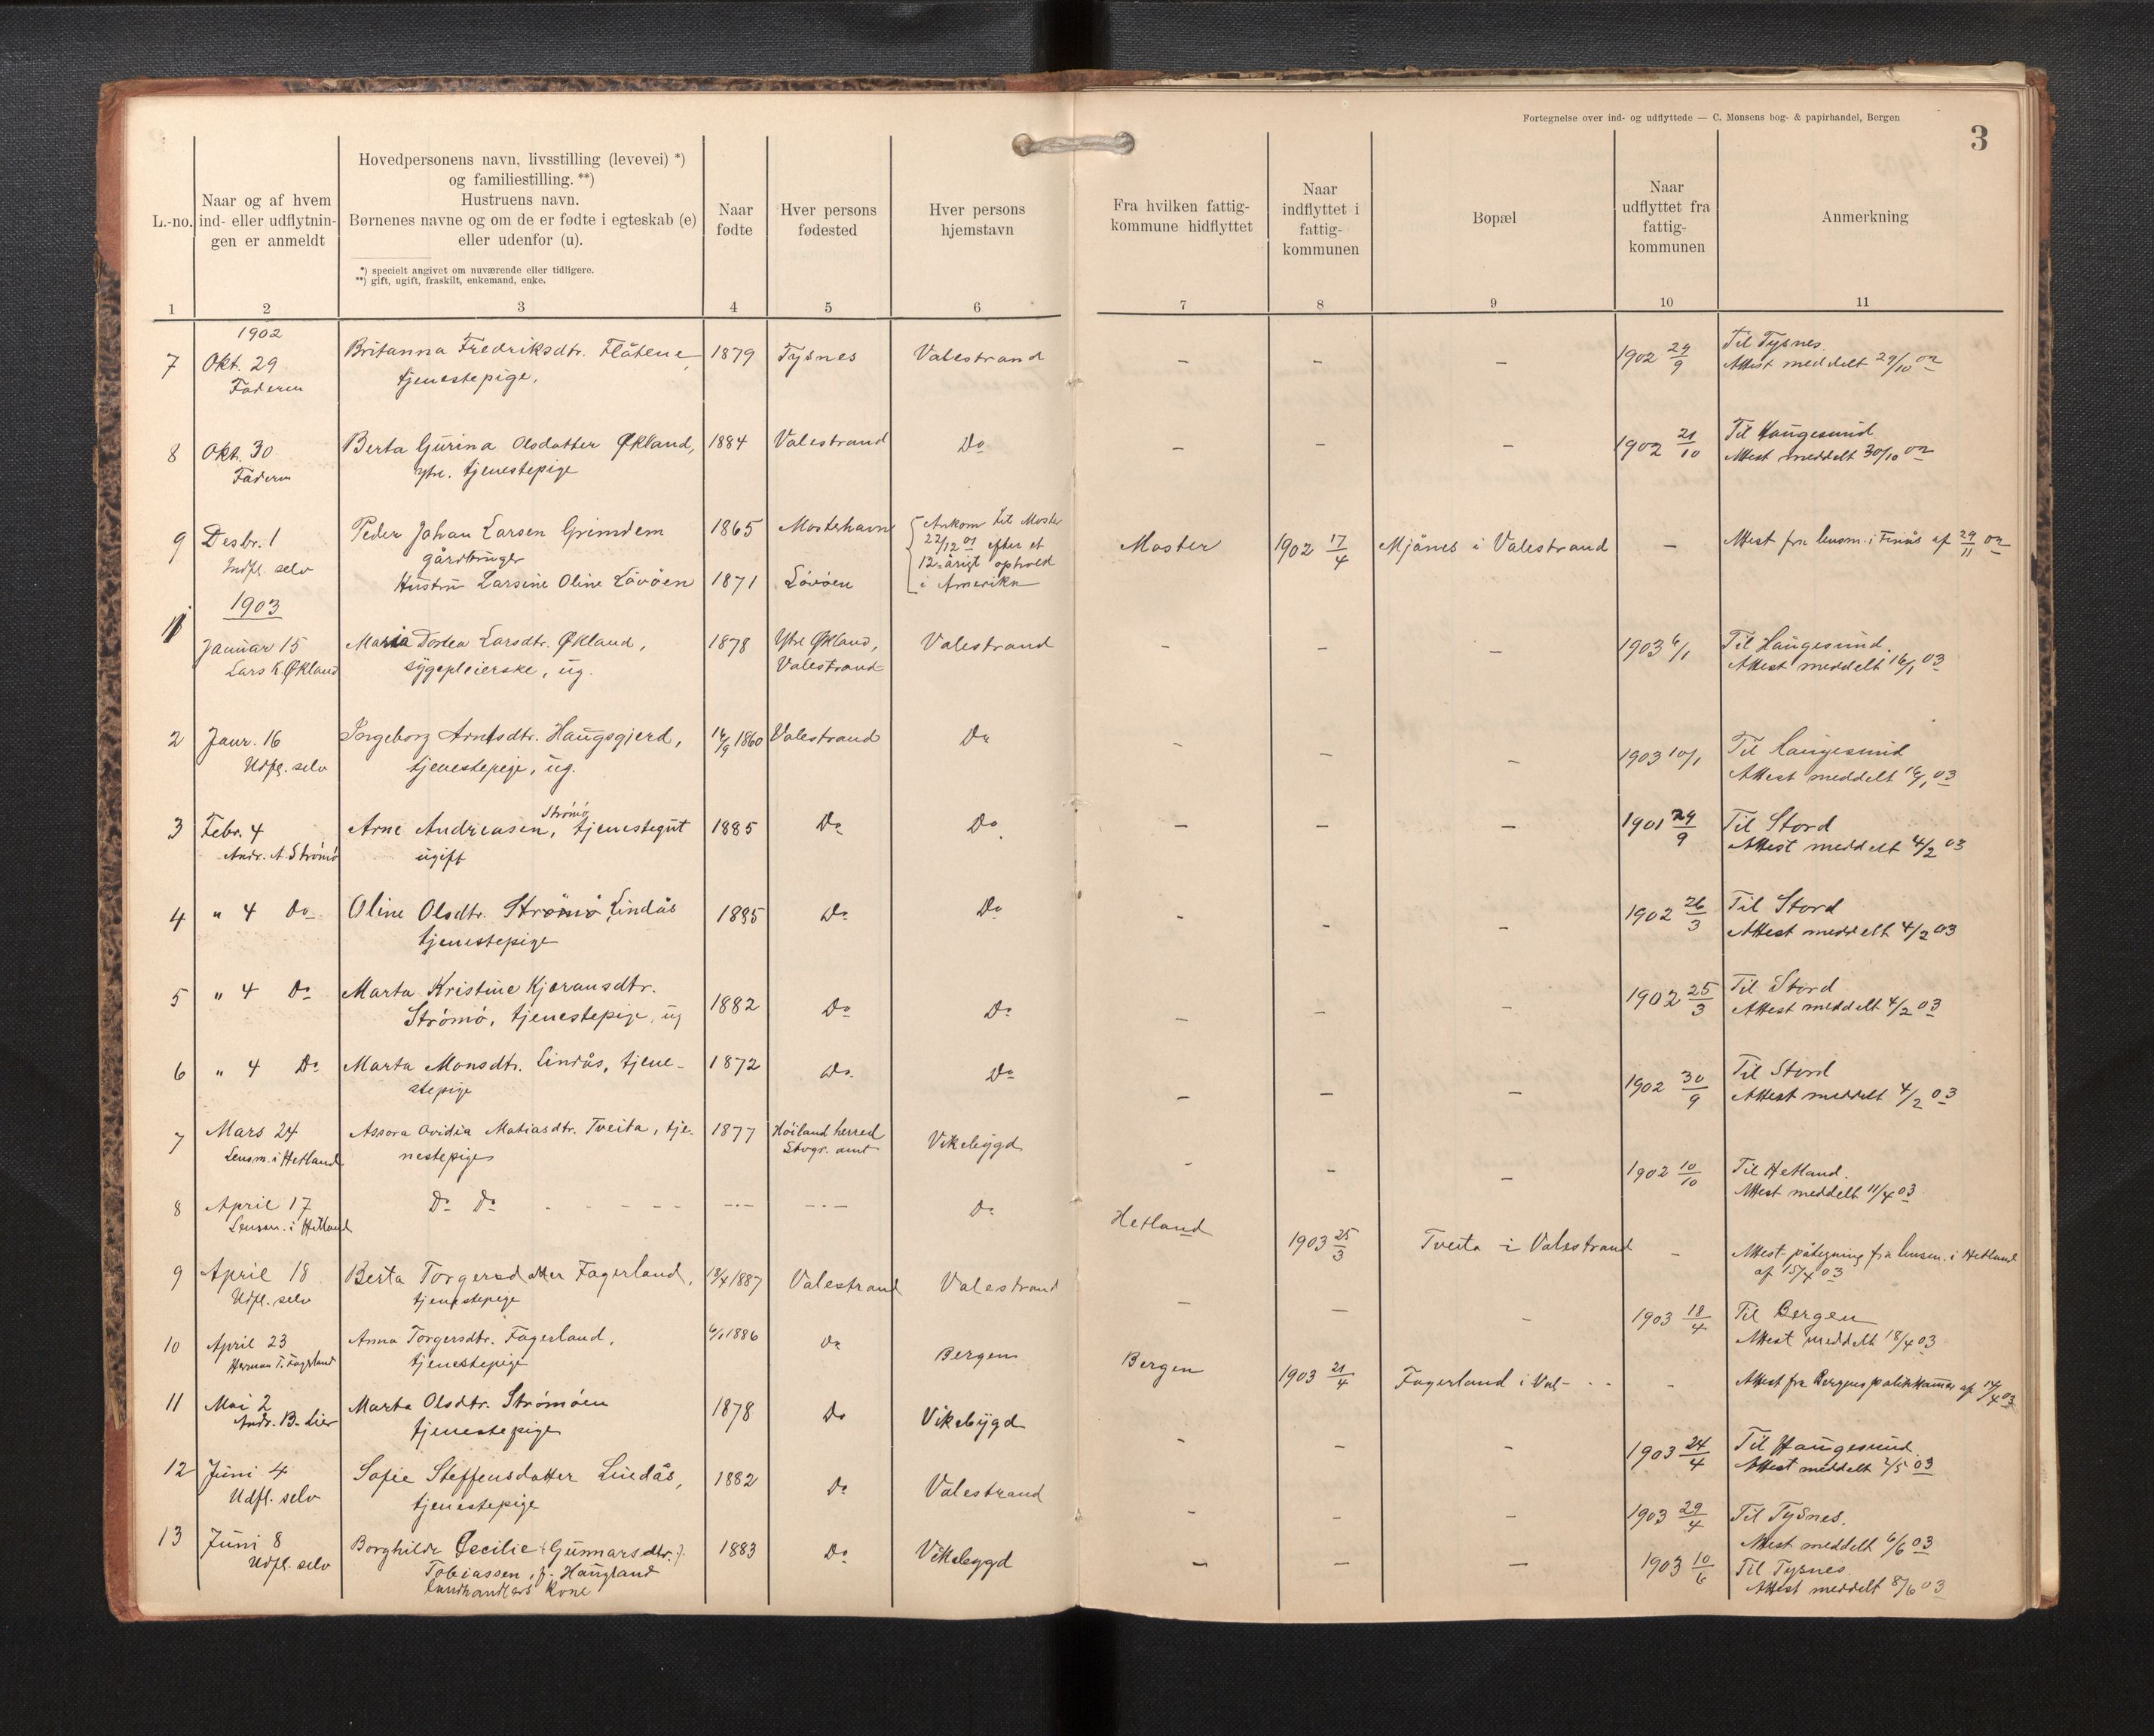 Fortegnelse over ind- og udflyttede — C. Monsens bog- & papirhandel, Bergen
3
L.-no.
Naar og af hvem
ind- eller udflytnin-
gen er anmeldt
Hovedpersonens navn, livsstilling (levevei) *)
og familiestilling. **)
Hustruens navn.
Børnenes navne og om de er fødte i egteskab (e)
eller udenfor (u).
*) specielt angivet om nuværende eller tidligere.
**) gift, ugift, fraskilt, enkemand, enke.
Naar
fødte
Hver persons
fødested
Hver persons
hjemstavn
Fra hvilken fattig-
kommune hidflyttet
Naar
indflyttet i
fattig-
kommunen
Bopæl
Naar
udflyttet fra
fattig-
kommunen
Anmerkning
1 2 3 4 5 6 7 8 9 10 11
1902
7 Okt. 29 Britanna Fredriksdtr. Flåtene, 1879 Tysnes Valestrand — — — 1902 29/9 Til Tysnes.
Faderen tjenestepige, Attest meddelt 29/10 02
8 Okt. 30 Berta Gurina Olsdatter Økland, 1884 Valestrand Do — — — 1902 21/10 Til Haugesund
Faderen ytre. tjenestepige Attest meddelt 30/10 02
9 Desbr. 1 Peder Johan Larsen Grimdem 1865 Mosterhavn Ankom til Moster Moster 1902 17/4 Mjånes i Valestrand — Attest fra lensm. i Finås af 29/11 02
Indfl. selv gårdbruger 22/12 01 efter et
12-årigt ophold
Hustru Larsine Oline Lövöen 1871 Lövöen i Amerika
1903
1 Januar 15 Maria Dortea Larsdtr. Økland, 1878 Ytre Økland, Valestrand — — — 1903 6/1 Til Haugesund.
Lars K. Økland sygepleierske, ug. Valestrand Attest meddelt 16/1 03
2 Janr. 16 Ingeborg Arntsdtr. Haugsgjerd, 14/9 1860 Valestrand Do — — — 1903 10/1 Til Haugesund
Udfl. selv tjenestepige, ug. Attest meddelt 16/1 03
Strömö
3 Febr. 4 Arne Andreasen, tjenestegut 1885 Do Do — — — 1901 29/9 Til Stord
Andr. A. Strömö ugift Attest meddelt 4/2 03
4 " 4 Do Oline Olsdtr. Strömö Lindås 1885 Do Do — — — 1902 26/3 Til Stord
tjenestepige Attest meddelt 4/2 03
5 " 4 Do Marta Kristine Kjeransdtr. 1882 Do Do — — — 1902 25/3 Til Stord
Strömö, tjenestepige, ug Attest meddelt 4/2 03
6 " 4 Do Marta Monsdtr. Lindås, tjene- 1872 Do Do — — — 1902 30/9 Til Stord
stepige Attest meddelt 4/2 03
7 Mars 24 Assora Ovidia Matiasdtr. Tveita, tje- 1877 Höiland herred Vikebygd — — — 1902 10/10 Til Hetland.
Lensm. i Hetland nestepige Stvgr. amt Attest meddelt 11/4 03
8 April 17 Do Do - - - - - Do Hetland 1903 25/3 Tveita i Valestrand — Attest-påtegning fra lensm. i Hetland
Lensm. i Hetland af 15/4 03
9 April 18 Berta Torgersdatter Fagerland, 18/4 1887 Valestrand Valestrand — — — 1903 18/4 Til Bergen
Udfl. selv tjenestepige Attest meddelt 18/4 03
10 April 23 Anna Torgersdtr. Fagerland, 6/1 1886 Do Bergen Bergen 1903 21/4 Fagerland i Val- - - — Attest fra Bergens politikammer af 14/4 03
Herman T. Fagerland tjenestepige
11 Mai 2 Marta Olsdtr. Strömöen 1878 Do Vikebygd — — — 1903 24/4 Til Haugesund.
Andr. B. Lier tjenestepige Attest meddelt 2/5 03
12 Juni 4 Sofie Steffensdatter Lindås, 1882 Do Valestrand — — — 1903 29/4 Til Tysnes.
Udfl. selv tjenestepige Attest meddelt 6/6 03
13 Juni 8 Borghilde Cecilie (Gunnarsdtr.) 1883 Do Vikebygd — — — 1903 10/6 Til Tysnes.
Udfl. selv Tobiassen, f. Haugland Attest meddelt 8/6 03
landhandlers kone